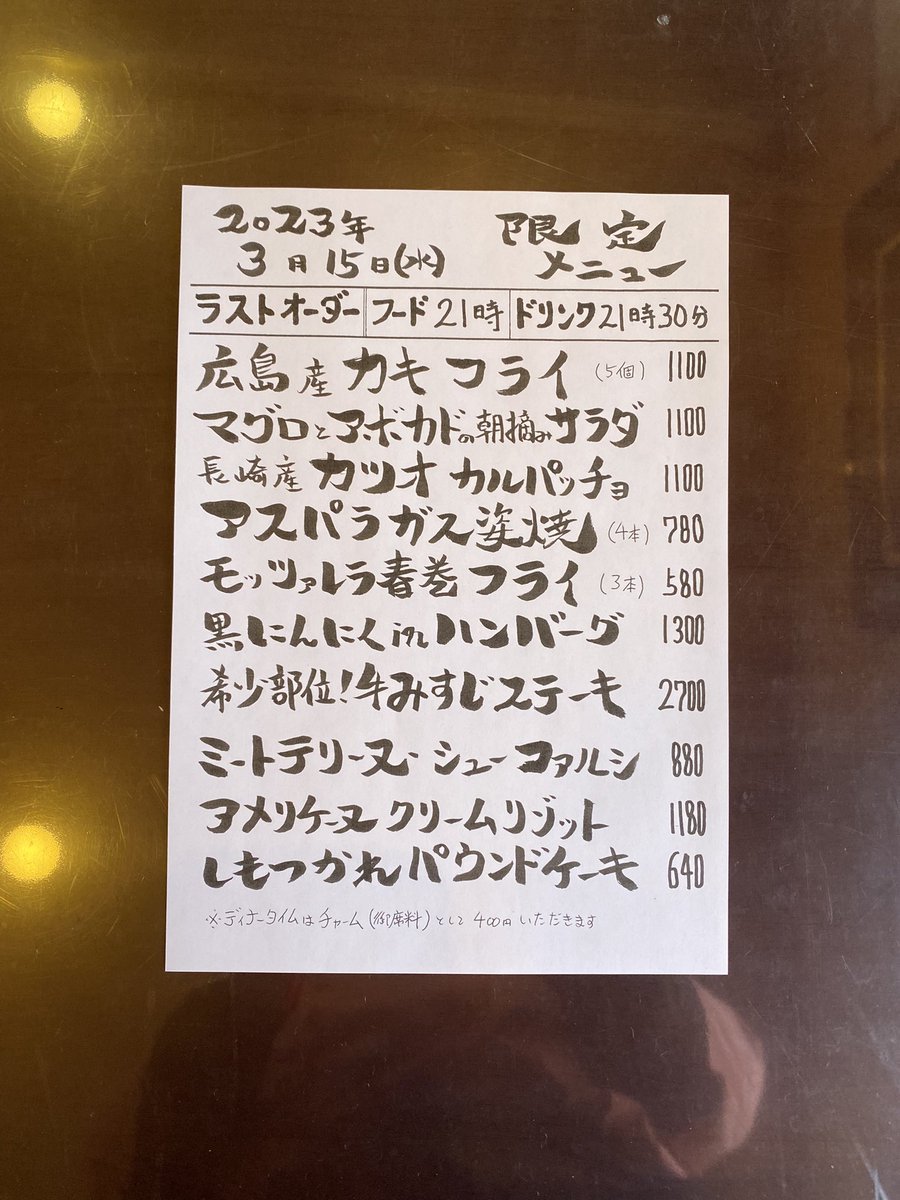 2023年 限定
3月15日(水) メニュー
ラストオーダー フード21時 ドリンク21時30分
広島産 カキフライ (5個) 1100
マグロとアボカドの朝摘みサラダ 1100
長崎産 カツオ カルパッチョ 1100
アスパラガス姿焼 (4本) 780
モッツァレラ春巻フライ (3本) 580
黒にんにくinハンバーグ 1300
希少部位!牛みすじステーキ 2700
ミートテリーヌ・シューファルシ 880
アメリケーヌクリームリゾット 1180
しもつかれパウンドケーキ 640
※ディナータイムはチャーム(御席料)として400円いただきます